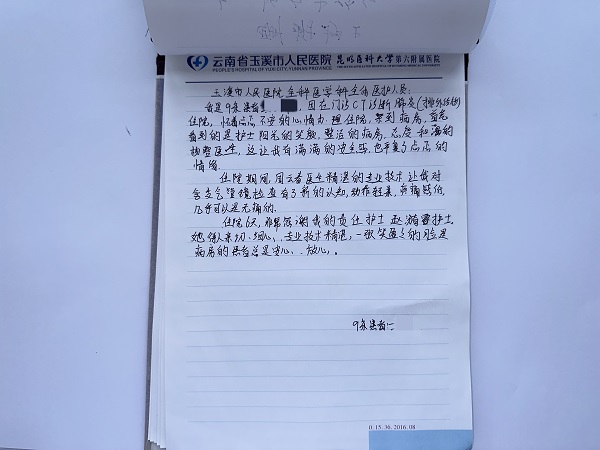 云南省玉溪市人民医院 昆明医科大学第六附属医院
PEOPLE'S HOSPITAL OF YUXI CITY, YUNNAN PROVINCE
玉溪市人民医院全科医学科全体医护人员:
我是9床患者 , 因在门诊CT诊断肺炎
住院, 怀着忐忑不安的心情办理住院, 来到病房, 首先
看到的是护士阳光的笑脸, 整洁的病房, 态度和蔼的
主管医生, 这让我有满满的安全感, 也平复了忐忑的
情绪。
住院期间, 医生精湛的专业技术让我对
支气管镜检查有了新的认知, 动作轻柔, 疼痛感低,
几乎可以是无痛的。
住院6天, 非常感谢我的责任护士 护士
她待人亲切、细心、专业技术精湛, 一张笑盈盈的脸是
病房的患者总是安心、放心。
9床患者
11 15.36.2016.08